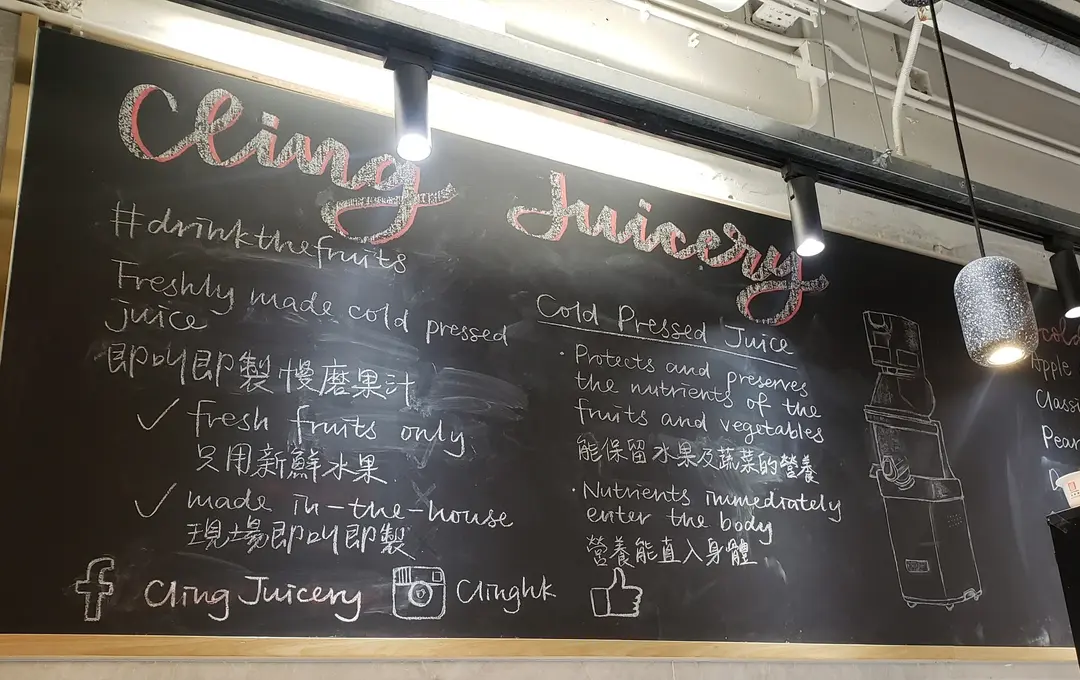 Cling Juicery
#drinkthefruits
Freshly made cold pressed
juice
即叫即製慢磨果汁
✓ fresh fruits only
只用新鮮水果
✓ made in-the-house
現場即叫即製
f Cling Juicery
Clinghk
Cold Pressed Juice
· Protects and preserves
the nutrients of the
fruits and vegetables
能保留水果及蔬菜的營養
· Nutrients immediately
enter the body
營養能直入身體
Apple
Classi
Pear